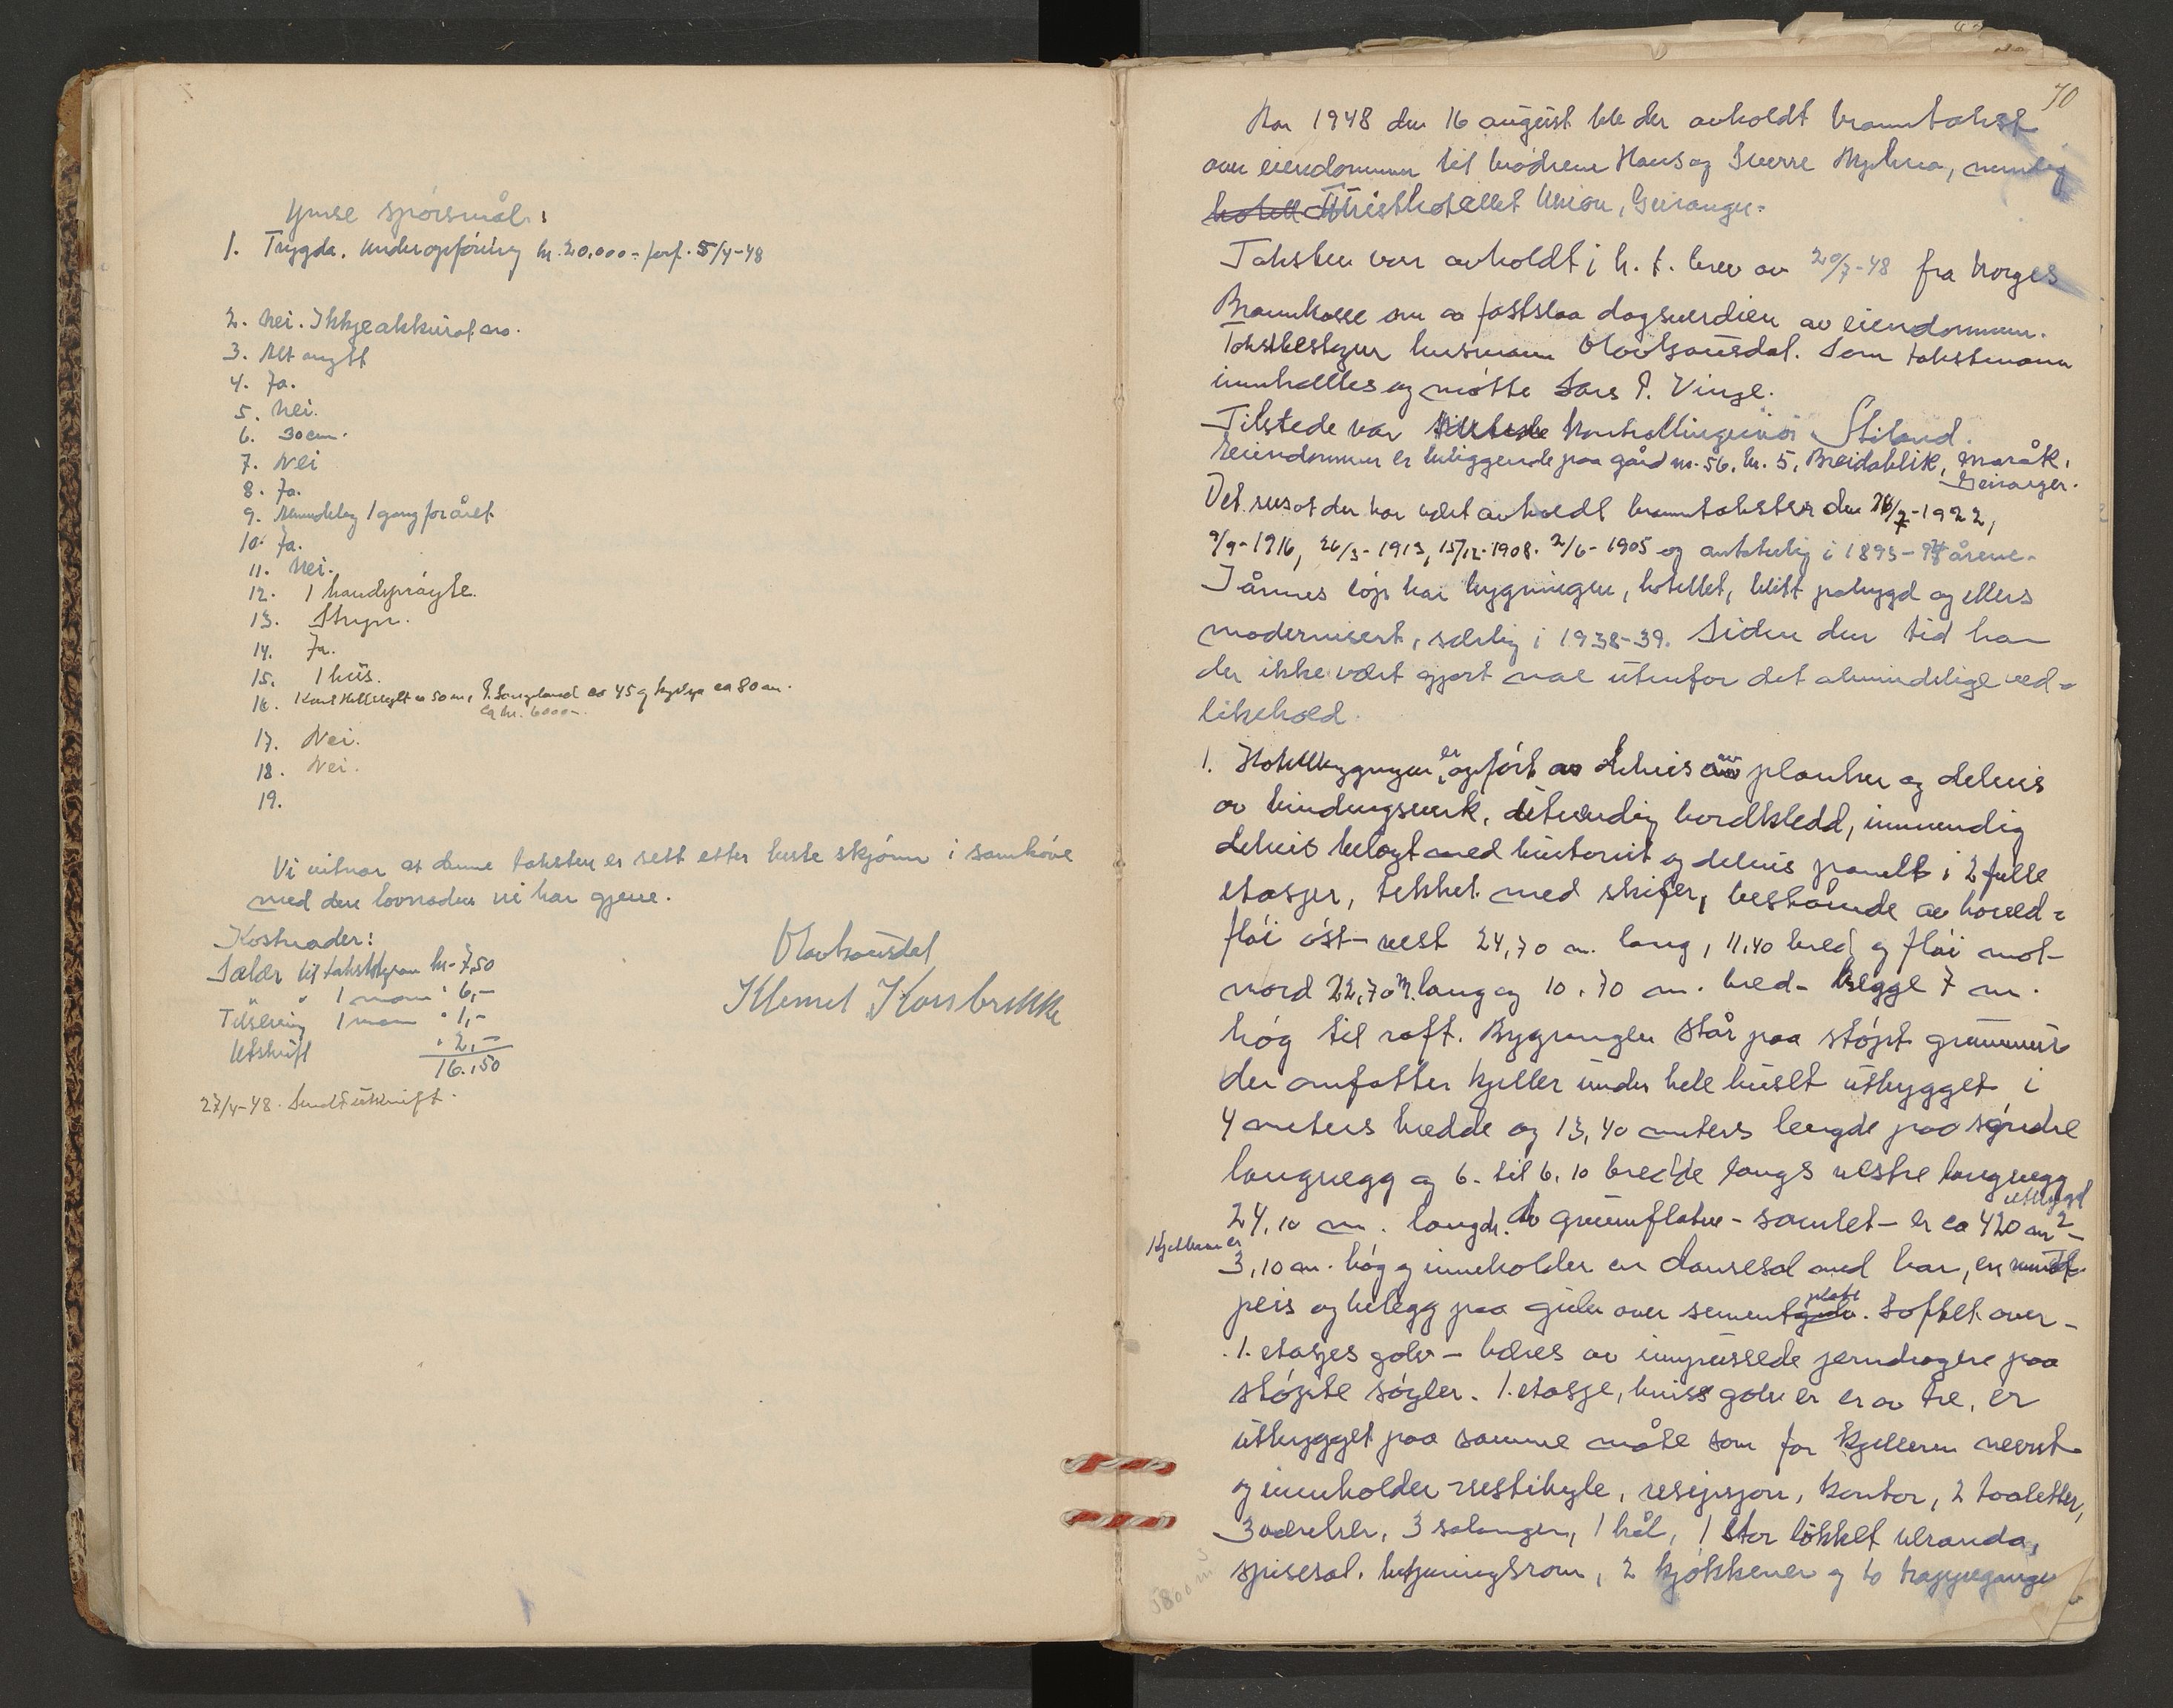 Ymse spórsmål:
1. Trygda. Underopföring kr. 20.000.- forf. 5/4-48
2. Nei. Ikkje akkurat no.
3. Alt nytt
4. Ja.
5. Nei.
6. 30 cm.
7. Nei
8. Ja.
9. Almindeleg 1 gang for året
10. Ja.
11. Nei.
12. 1 handspröyte.
13. Stryn.
14. Ja.
15. 1 hus.
16. Karl Hellesylt ca 50 m, P. Langeland ca 45 og kyrkja ca 80 m.
ca kr. 6000-
17. Nei.
18. Nei.
19.
Vi vitnar at denne taksten er sett etter beste skjönn i samhöve
med den lovnaden vi har gjeve.
Kostnader:
Salær til takstbygram kr. 7,50
" " 1 mann " 6,-
Tilseiing 1 mann " 1,-
Utskrift " 2,-
16.,50
Olav Lausdal
Klemet Korsbrekke
27/4-48. Sendt utskrift.
70
Aar 1948 den 16 august ble der avholdt branntakst
over eiendommen til brödrene Hans og Sverre Mjelva, nemlig
hotell Turisthotellet Union, Geiranger.
Taksten var avholdt i h. t. brev av 20/7-48 fra Norges
Brannkasse om aa fastslaa dagsverdien av eiendommen.
Takstbestyrer husmann Olav Lausdal. Som takstmann
innkaltes og mötte Lars P. Vinje.
Tilstede var kontrollingeniör Stiland.
Eiendommen er beliggende paa gård nr. 56, br. 5, Breidablik, Maråk,
Geiranger.
Det sees at der har vært avholdt branntakster den 26/7-1922,
9/9-1916, 26/3-1913, 15/12-1908. 2/6-1905 og antakelig i 1893-94 årene.
I årenes löp har bygningen, hotellet, blitt påbygd og ellers
modernisert, særlig i 1938-39. Siden den tid har
der ikke vært gjort noe utenfor det almindelige ved-
likehold.
1. Hotellbygningen er opfört av delvis av planker og delvis
av bindingsverk, utvendig bordkledd, innvendig
delvis belagt med huntonit og delvis panelt i 2 fulle
etasjer, tekket med skifer, bestående av hoved-
flöi öst-vest 24,70 m. lang, 11,40 bred og flöi mot
nord 22,70 m. lang og 10.70 m. bred - begge 7 m.
hög til raft. Bygningen står paa stöpt grunnmur
der omfatter kjeller under hele huset utbygget i
4 meters bredde og 13,40 meters lengde paa söndre
langvegg og 6. til 6.10 bredde langs vestre langvegg
utbygd
24,10 m. lengde. Grunnflaten - samlet - er ca 420 m2 -
Kjelleren er
3,10 m. hög og inneholder en dansesal med bar, en
peis og belegg paa gulv over sementgulv plate. Loftet over -
1. etasjes golv - bæres av innpussede jerndragere paa
stöpte söyler. 1. etasje, hviss golv er er av tre, er
utbygget paa samme måte som for kjelleren nevnt
og inneholder vestibyle, resepsjon, kontor, 2 toaletter,
3 værelser, 3 salonger, 1 hål, 1 stor lukket veranda,
spisesal, betjeningsrom, 2 kjökkener og to trappeganger
5800 m3